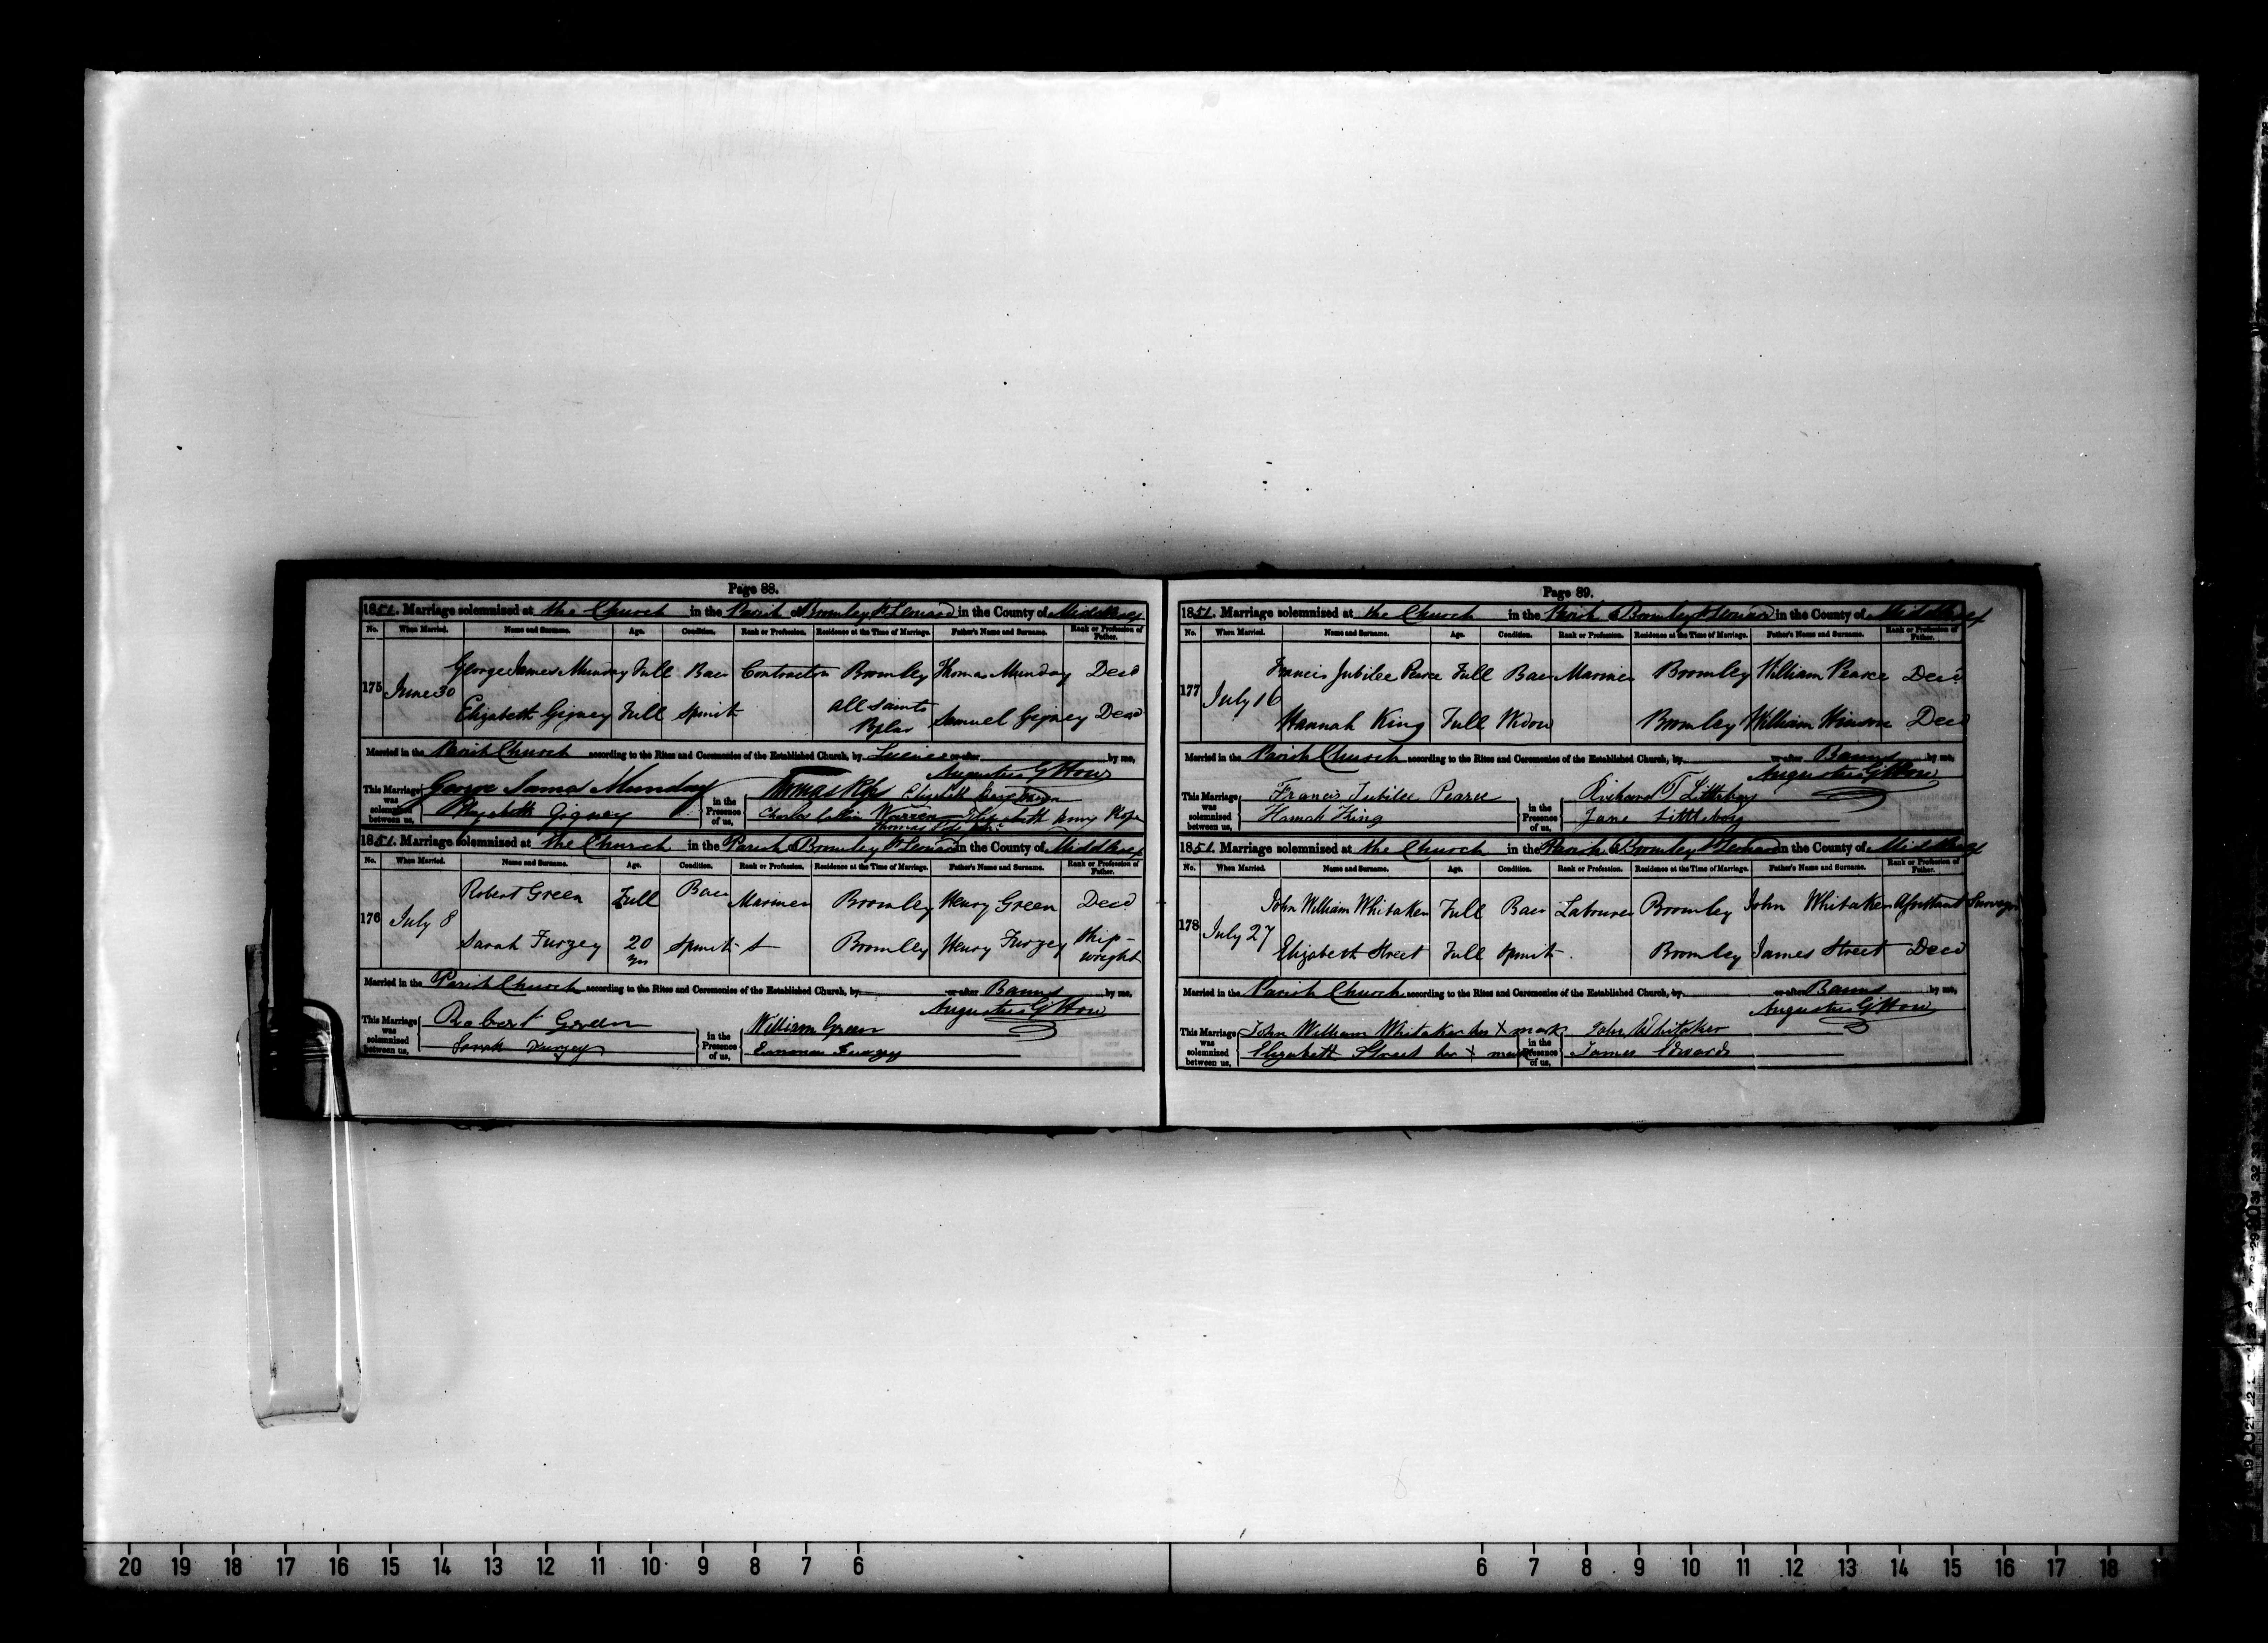 Page 88.
1851. Marriage solemnized at the Church in the Parish of Bromley St Leonard in the County of Middlesex
No. When Married. Name and Surname. Age. Condition. Rank or Profession. Residence at the Time of Marriage. Father's Name and Surname. Rank or Profession of Father.
175 June 30 George James Munday Full Bac Contractor Bromley Thomas Munday Decd
Elizabeth Gigney Full Spinst All Saints Poplar Samuel Gigney Decd
Married in the Parish Church according to the Rites and Ceremonies of the Established Church, by Licence or after by me,
Augustus G How
This Marriage was solemnized between us, George James Munday in the Presence of us, Thomas
Elizabeth Gigney Charles Warren Elizabeth
1851. Marriage solemnized at the Church in the Parish of Bromley St Leonard in the County of Middlesex
No. When Married. Name and Surname. Age. Condition. Rank or Profession. Residence at the Time of Marriage. Father's Name and Surname. Rank or Profession of Father.
176 July 8 Robert Green Full Bac Mariner Bromley Henry Green Decd
Sarah Furzey 20 yrs Spinst Bromley Henry Furzey Ship-wright
Married in the Parish Church according to the Rites and Ceremonies of the Established Church, by or after Banns by me,
Augustus G How
This Marriage was solemnized between us, Robert Green in the Presence of us, William Green
Sarah Furzey Furzey
Page 89.
1851. Marriage solemnized at the Church in the Parish of Bromley St Leonard in the County of Middlesex
No. When Married. Name and Surname. Age. Condition. Rank or Profession. Residence at the Time of Marriage. Father's Name and Surname. Rank or Profession of Father.
177 July 16 Francis Jubilee Pearce Full Bac Mariner Bromley William Pearce Decd
Hannah King Full Widow Bromley William Decd
Married in the Parish Church according to the Rites and Ceremonies of the Established Church, by or after Banns by me,
Augustus G How
This Marriage was solemnized between us, Francis Jubilee Pearce in the Presence of us, Richard T Littleboy
Hannah King Jane Littleboy
1851. Marriage solemnized at the Church in the Parish of Bromley St Leonard in the County of Middlesex
No. When Married. Name and Surname. Age. Condition. Rank or Profession. Residence at the Time of Marriage. Father's Name and Surname. Rank or Profession of Father.
178 July 27 John William Whitaker Full Bac Labourer Bromley John Whitaker Assistant Surveyor
Elizabeth Street Full Spinst Bromley James Street Decd
Married in the Parish Church according to the Rites and Ceremonies of the Established Church, by or after Banns by me,
Augustus G How
This Marriage was solemnized between us, John William Whitaker his X mark in the Presence of us, John Whitaker
Elizabeth Street her X mark James Edwards
20 19 18 17 16 15 14 13 12 11 10 9 8 7 6 6 7 8 9 10 11 12 13 14 15 16 17 18